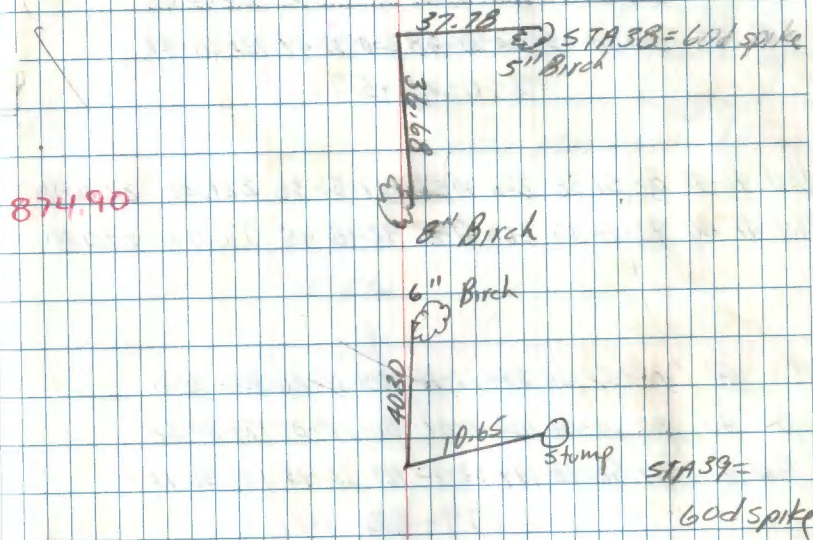 37.78 STA38=60d spike
5" Birch
36.68
874.90
8" Birch
6" Birch
40.30
10.65
Stump
STA39=
60d spike